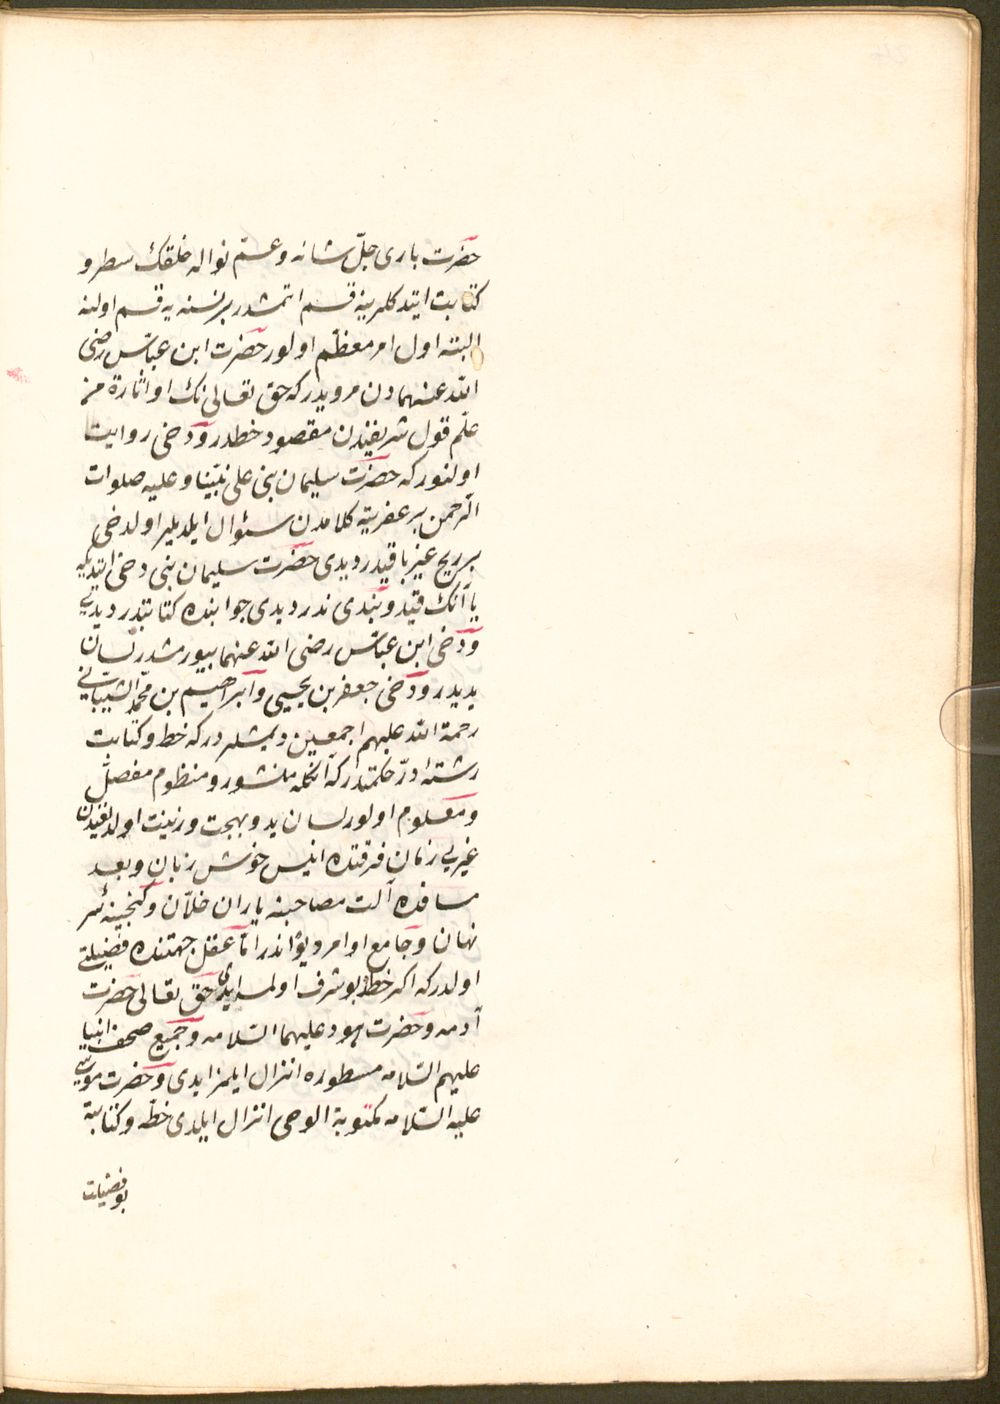 حضرت باری جلّ شانه وعمّ نواله خلقك سطر و
كتابت ایتدكلرینه قسم اتمشدر برنسنه یه قسم اولنه
البته اول امر معظّم اولور حضرت ابن عبّاس رضی
الله عنهمادن مرویدر كه حق تعالی نك او اثارة من
علم قول شریفندن مقصود خطدر ودخی روایت
اولنور كه حضرت سلیمان نبی علی نبیّنا وعلیه صلوات
الرّحمن بر عفریته كلامدن سئوال ایلدیلر اولدخی
بر ریح غیر باقیدر دیدی حضرت سلیمان نبی دخی ایتدیكه
یا آنك قید وبندی ندر دیدی جوابنده كتابتدر دیدی
ودخی ابن عبّاس رضی الله عنهما بیورمشدر لسان
یدیدر ودخی جعفر بن یحیی وابراهیم بن محمّد الشیبانی
رحمة الله علیهم اجمعین دیمشلردر كه خط وكتابت
رشتۀ درّ حكمتدر كه آنكله منشور ومنظوم مفصّل
ومعلوم اولور لسان ید وبهجت وزینت اولدیغیندن
غیری زمان فرقتده انیس خوش زبان وبعد
مسافه‌ده آلت مصاحبۀ یاران خلّان وكنجینۀ سر
نهان وجامع اوامر دیواندر امّا عقل جهتنده فضیلتی
اولدركه اكر خطّ بو شرف اولمسایدی حق تعالی حضرت
آدمه وحضرت هود علیهما السّلامه وجمیع صحف انبیا
علیهم السّلامه مسطوره انزال ایلمزایدی وحضرت موسی
علیه السّلامه مكتوبة الوحی انزال ایلدی خطّه وكتابته
بو فضیلت